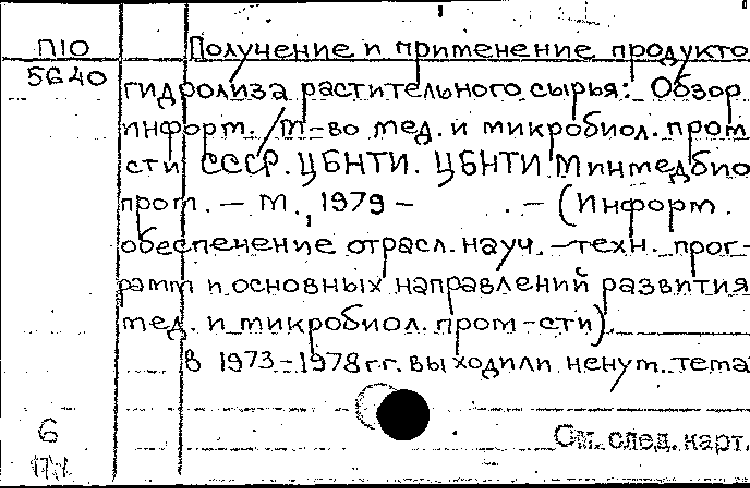 П10
5640
Получение и применение продукто
гидролиза растительного сырья: Обзор
информ. / М-во мед. и микробиол. пром
сти СССР. ЦБНТИ. ЦБНТИ Минмедбио
пром. – М., 1979 – . – (Информ.
обеспечение отрасл. науч. – техн. прог-
рамм и основных направлений развития
мед. и микробиол. пром-сти)
В 1973–1978 гг. выходили ненум. тема
6
См. след. карт.